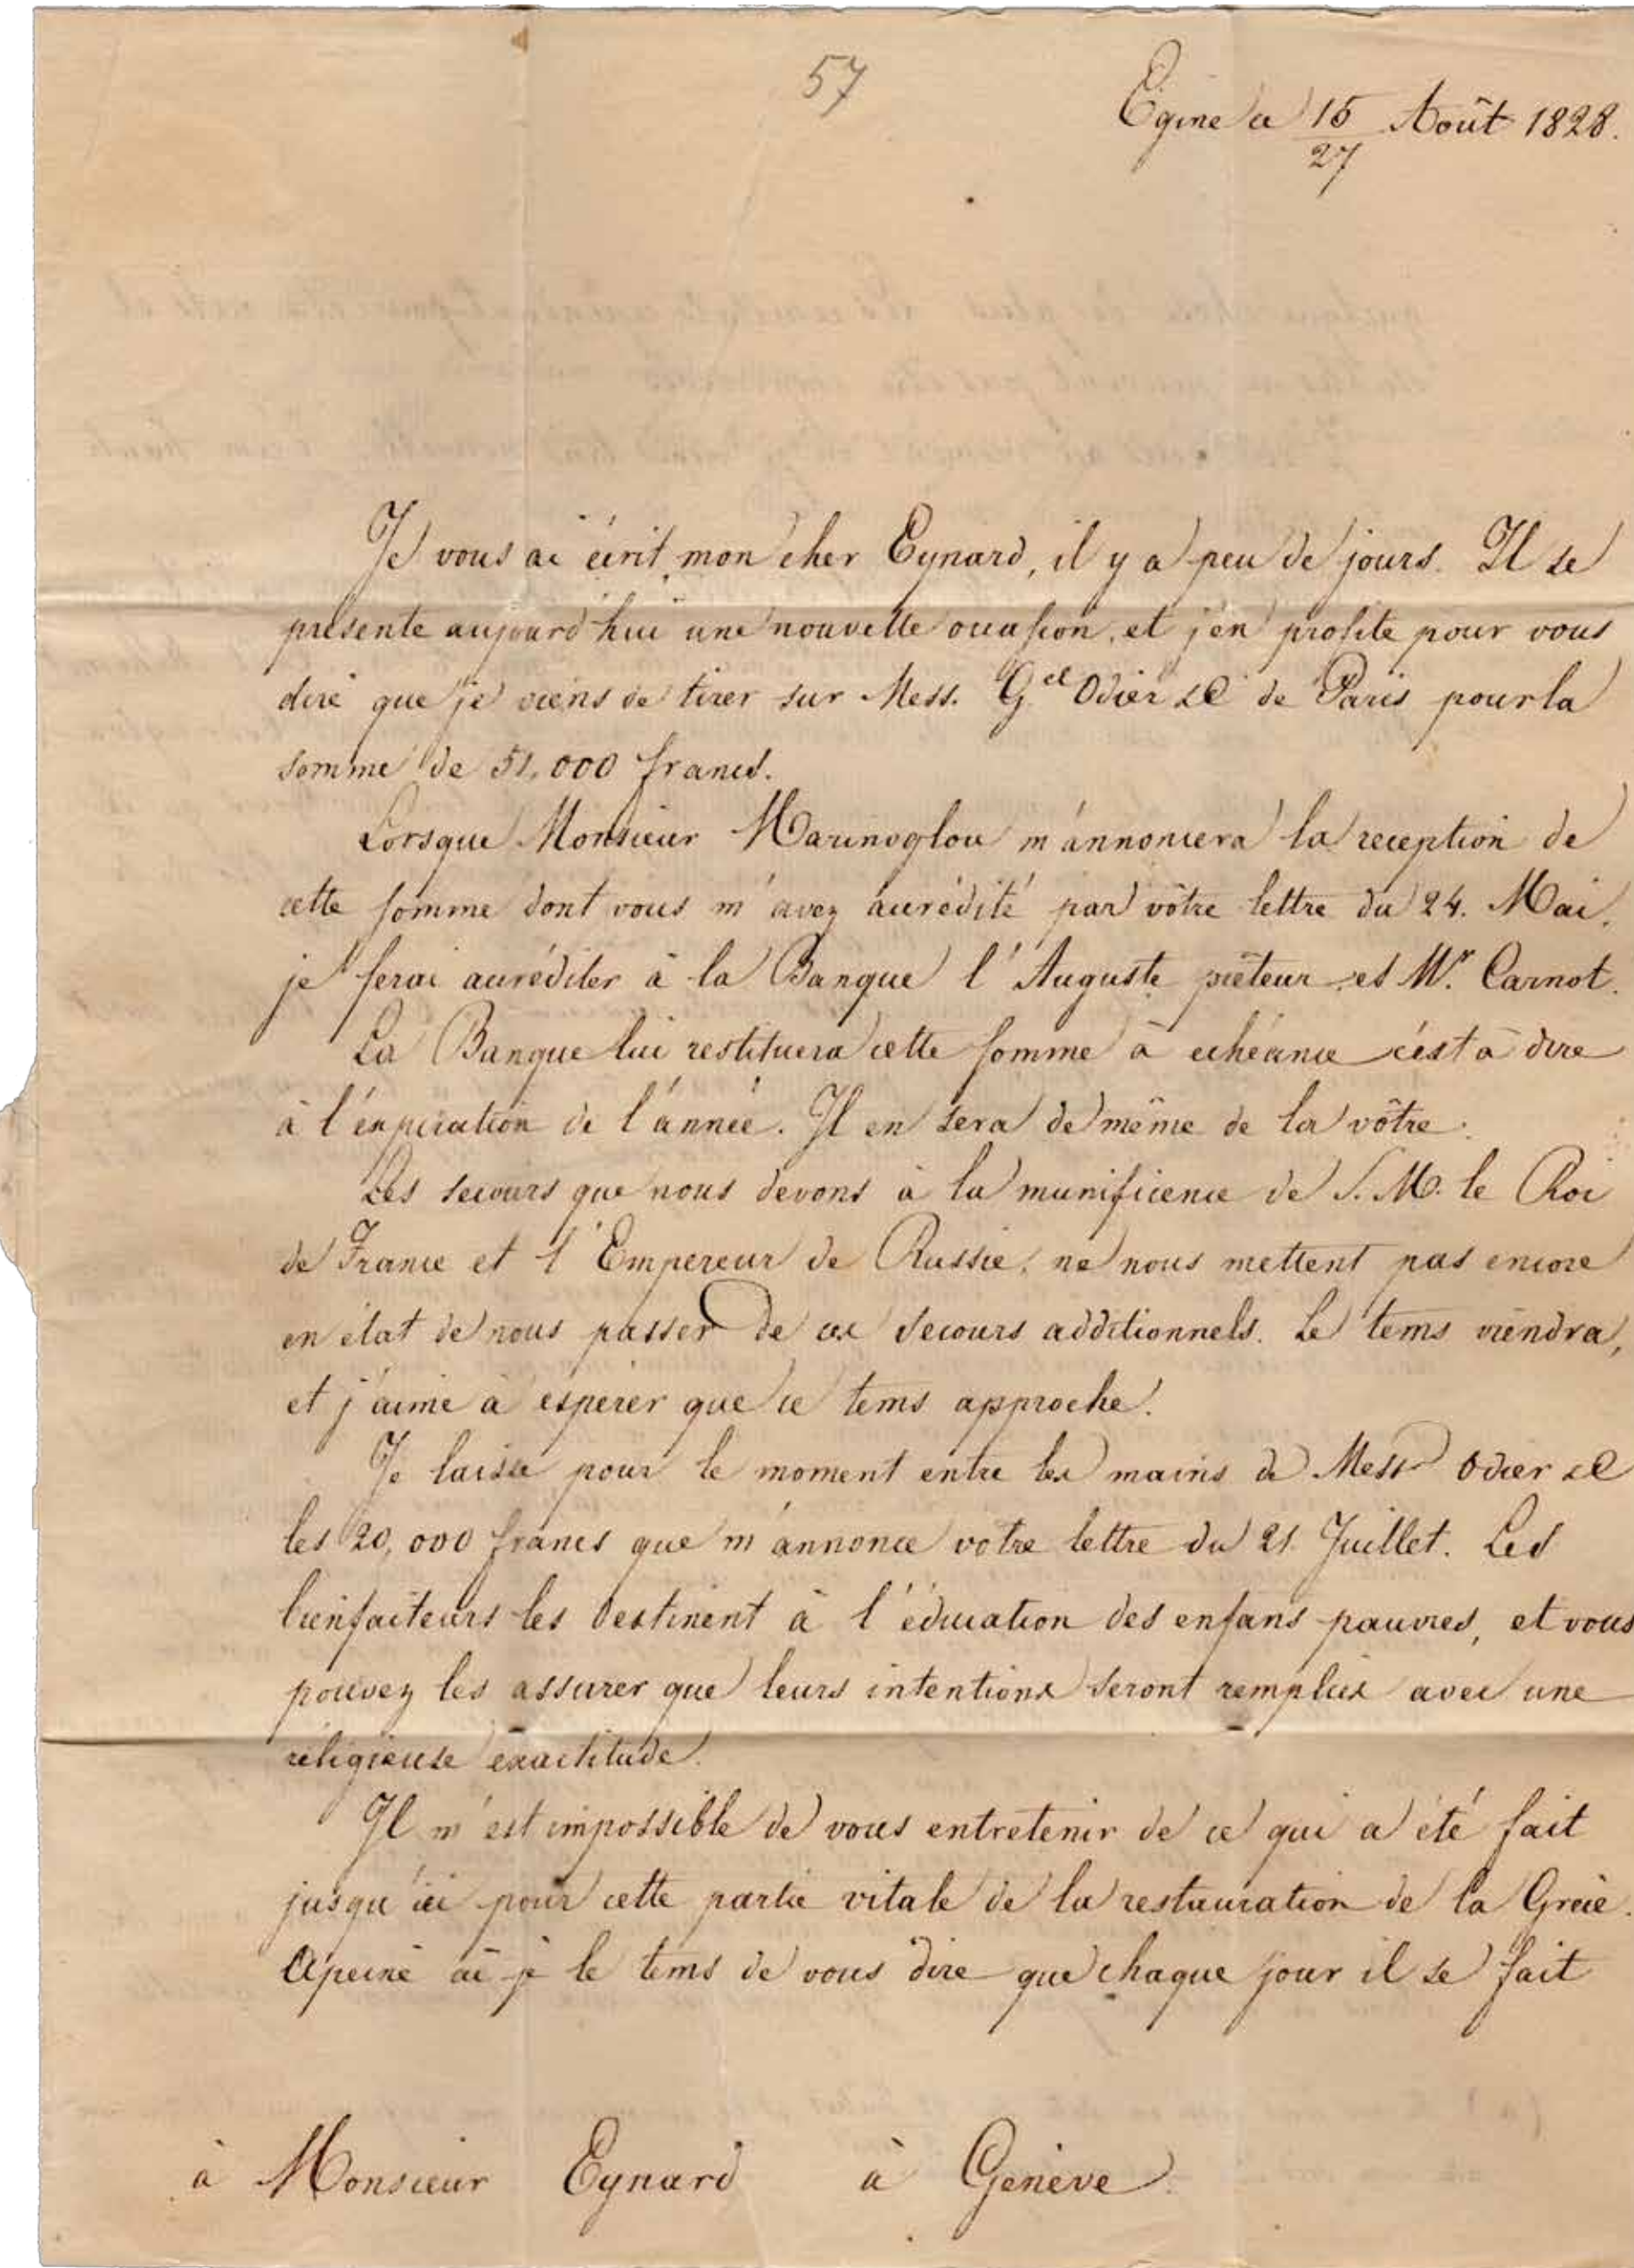 57
Egine a 15/27 Août 1828.
Je vous ai écrit, mon cher Eynard, il y a peu de jours. Il se
présente aujourd'hui une nouvelle occasion, et j'en profite pour vous
dire que je viens de tirer sur Mess. Gel Odier &C de Paris pour la
somme de 51,000 francs.
Lorsque Monsieur Marinoglou m'annoncera la reception de
cette somme dont vous m'avez accrédité par vôtre lettre du 24. Mai,
je ferai accréditer à la Banque l'Auguste prêteur et Mr. Carnot.
La Banque lui restituera cette somme à echéance c'est à dire
à l'expiration de l'année. Il en sera de même de la vôtre.
Les secours que nous devons à la munificence de S. M. le Roi
de France et l'Empereur de Russie, ne nous mettent pas encore
en état de nous passer de ces secours additionnels. Le tems viendra,
et j'aime à espérer que ce tems approche.
Je laisse pour le moment entre les mains de Messrs Odier &C
les 20,000 francs que m'annonce votre lettre du 21. Juillet. Les
bienfaiteurs les destinent à l'éducation des enfans pauvres, et vous
pouvez les assurer que leurs intentions seront remplies avec une
réligieuse exactitude.
Il m'est impossible de vous entretenir de ce qui a été fait
jusqu'ici pour cette partie vitale de la restauration de la Grèce.
Apeine ai-je le tems de vous dire que chaque jour il se fait
à Monsieur Eynard à Genève.